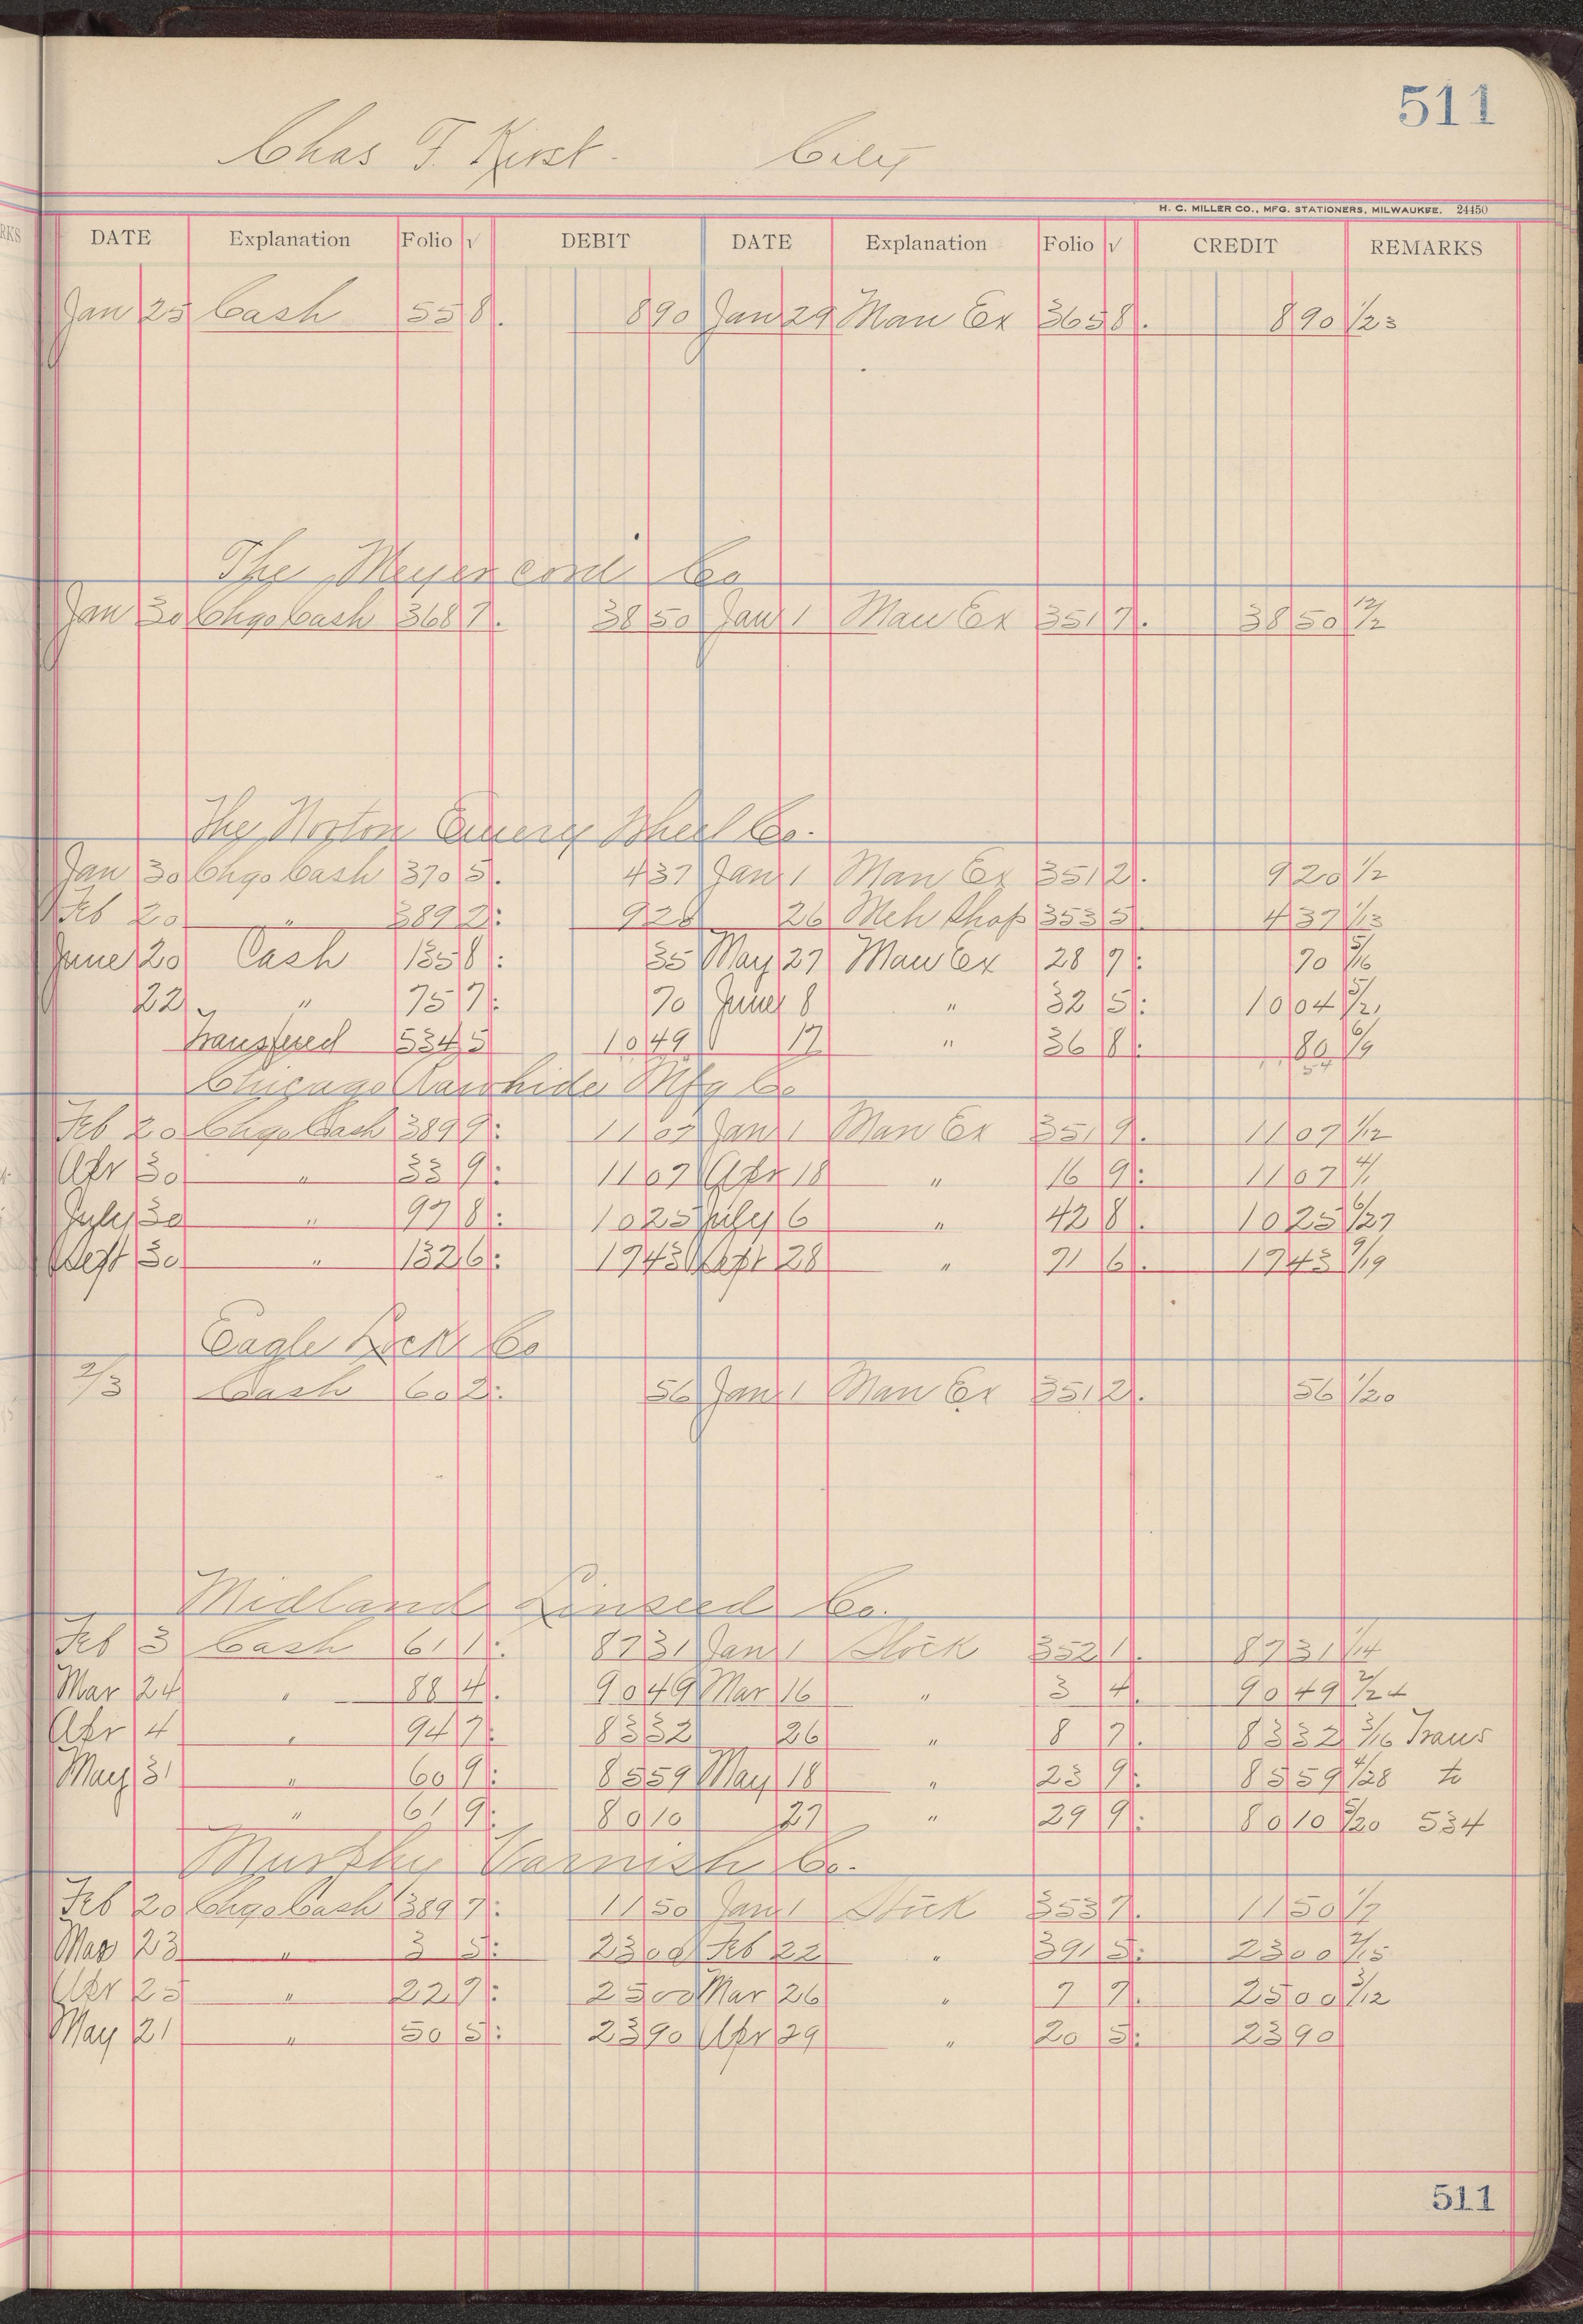 511
Chas F. Kirst. City
H. C. MILLER CO., MFG. STATIONERS, MILWAUKEE. 24450
DATE Explanation Folio √ DEBIT DATE Explanation Folio √ CREDIT REMARKS
Jan 25 Cash 55 8 8 90 Jan 29 Man Ex 365 8 8 90 1/23
The Meyercord Co
Jan 30 Chgo Cash 368 7 38 50 Jan 1 Man Ex 351 7 38 50 12/2
The Norton Emery Wheel Co.
Jan 30 Chgo Cash 370 5 4 37 Jan 1 Man Ex 351 2 9 20 1/2
Feb 20 " 389 2 9 20 26 Mch Shop 353 5 4 37 1/13
June 20 Cash 135 8 35 May 27 Man Ex 28 7 70 5/16
22 " 75 7 70 June 8 " 32 5 10 04 5/21
Transfered 534 5 10 49 17 " 36 8 80 6/9
Chicago Rawhide Mfg Co
Feb 20 Chgo Cash 389 9 11 07 Jan 1 Man Ex 351 9 11 07 1/12
Apr 30 " 33 9 11 07 Apr 18 " 16 9 11 07 4/1
July 30 " 97 8 10 25 July 6 " 42 8 10 25 6/27
Sept 30 " 132 6 17 43 Sept 28 " 71 6 17 43 9/19
Eagle Lock Co
2/3 Cash 60 2 56 Jan 1 Man Ex 351 2 56 1/20
Midland Linseed Co.
Feb 3 Cash 61 1 87 31 Jan 1 Stock 352 1 87 31 1/14
Mar 24 " 88 4 90 49 Mar 16 " 3 4 90 49 2/24
Apr 4 " 94 7 83 32 26 " 8 7 83 32 3/16 Trans
May 31 " 60 9 85 59 May 18 " 23 9 85 59 4/28 to
" 61 9 80 10 27 " 29 9 80 10 5/20 534
Murphy Varnish Co.
Feb 20 Chgo Cash 389 7 11 50 Jan 1 Stock 353 7 11 50 1/7
Mar 23 " 3 5 23 00 Feb 22 " 391 5 23 00 2/15
Apr 25 " 22 7 25 00 Mar 26 " 7 7 25 00 3/12
May 21 " 50 5 23 90 Apr 29 " 20 5 23 90
511